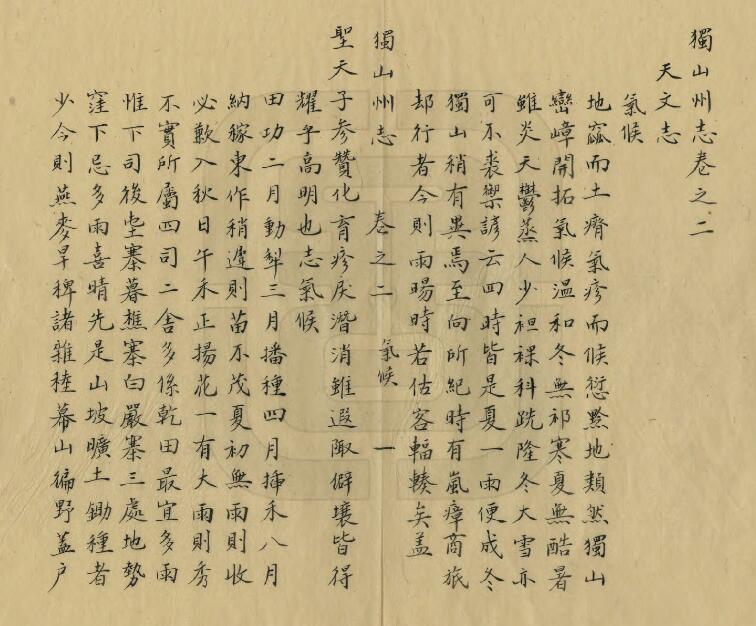 獨山州志卷之二
天文志
氣候
地窳而土瘠氣疹而候愆黔地類然獨山
巒嶂開拓氣候溫和冬無祁寒夏無酷暑
雖炎天鬱蒸人少袒裸科跣隆冬大雪亦
可不裘禦諺云四時皆是夏一雨便成冬
獨山稍有異焉至向所紀時有嵐瘴商旅
却行者今則雨暘時若估客輻輳矣蓋
獨山州志 卷之二 氣候 一
聖天子參贊化育疹戾潛消雖遐陬僻壤皆得
耀乎高明也志氣候
田功二月動犁三月播種四月揷禾八月
納稼東作稍遲則苗不茂夏初無雨則收
必歉入秋日午禾正揚花一有大雨則秀
不實所屬四司二舍多係乾田最宜多雨
惟下司後坐寨暮樵寨白巖寨三處地勢
窪下忌多雨喜晴先是山坡曠土鋤種者
少今則燕麥旱稗諸雜稑幕山徧野蓋戶